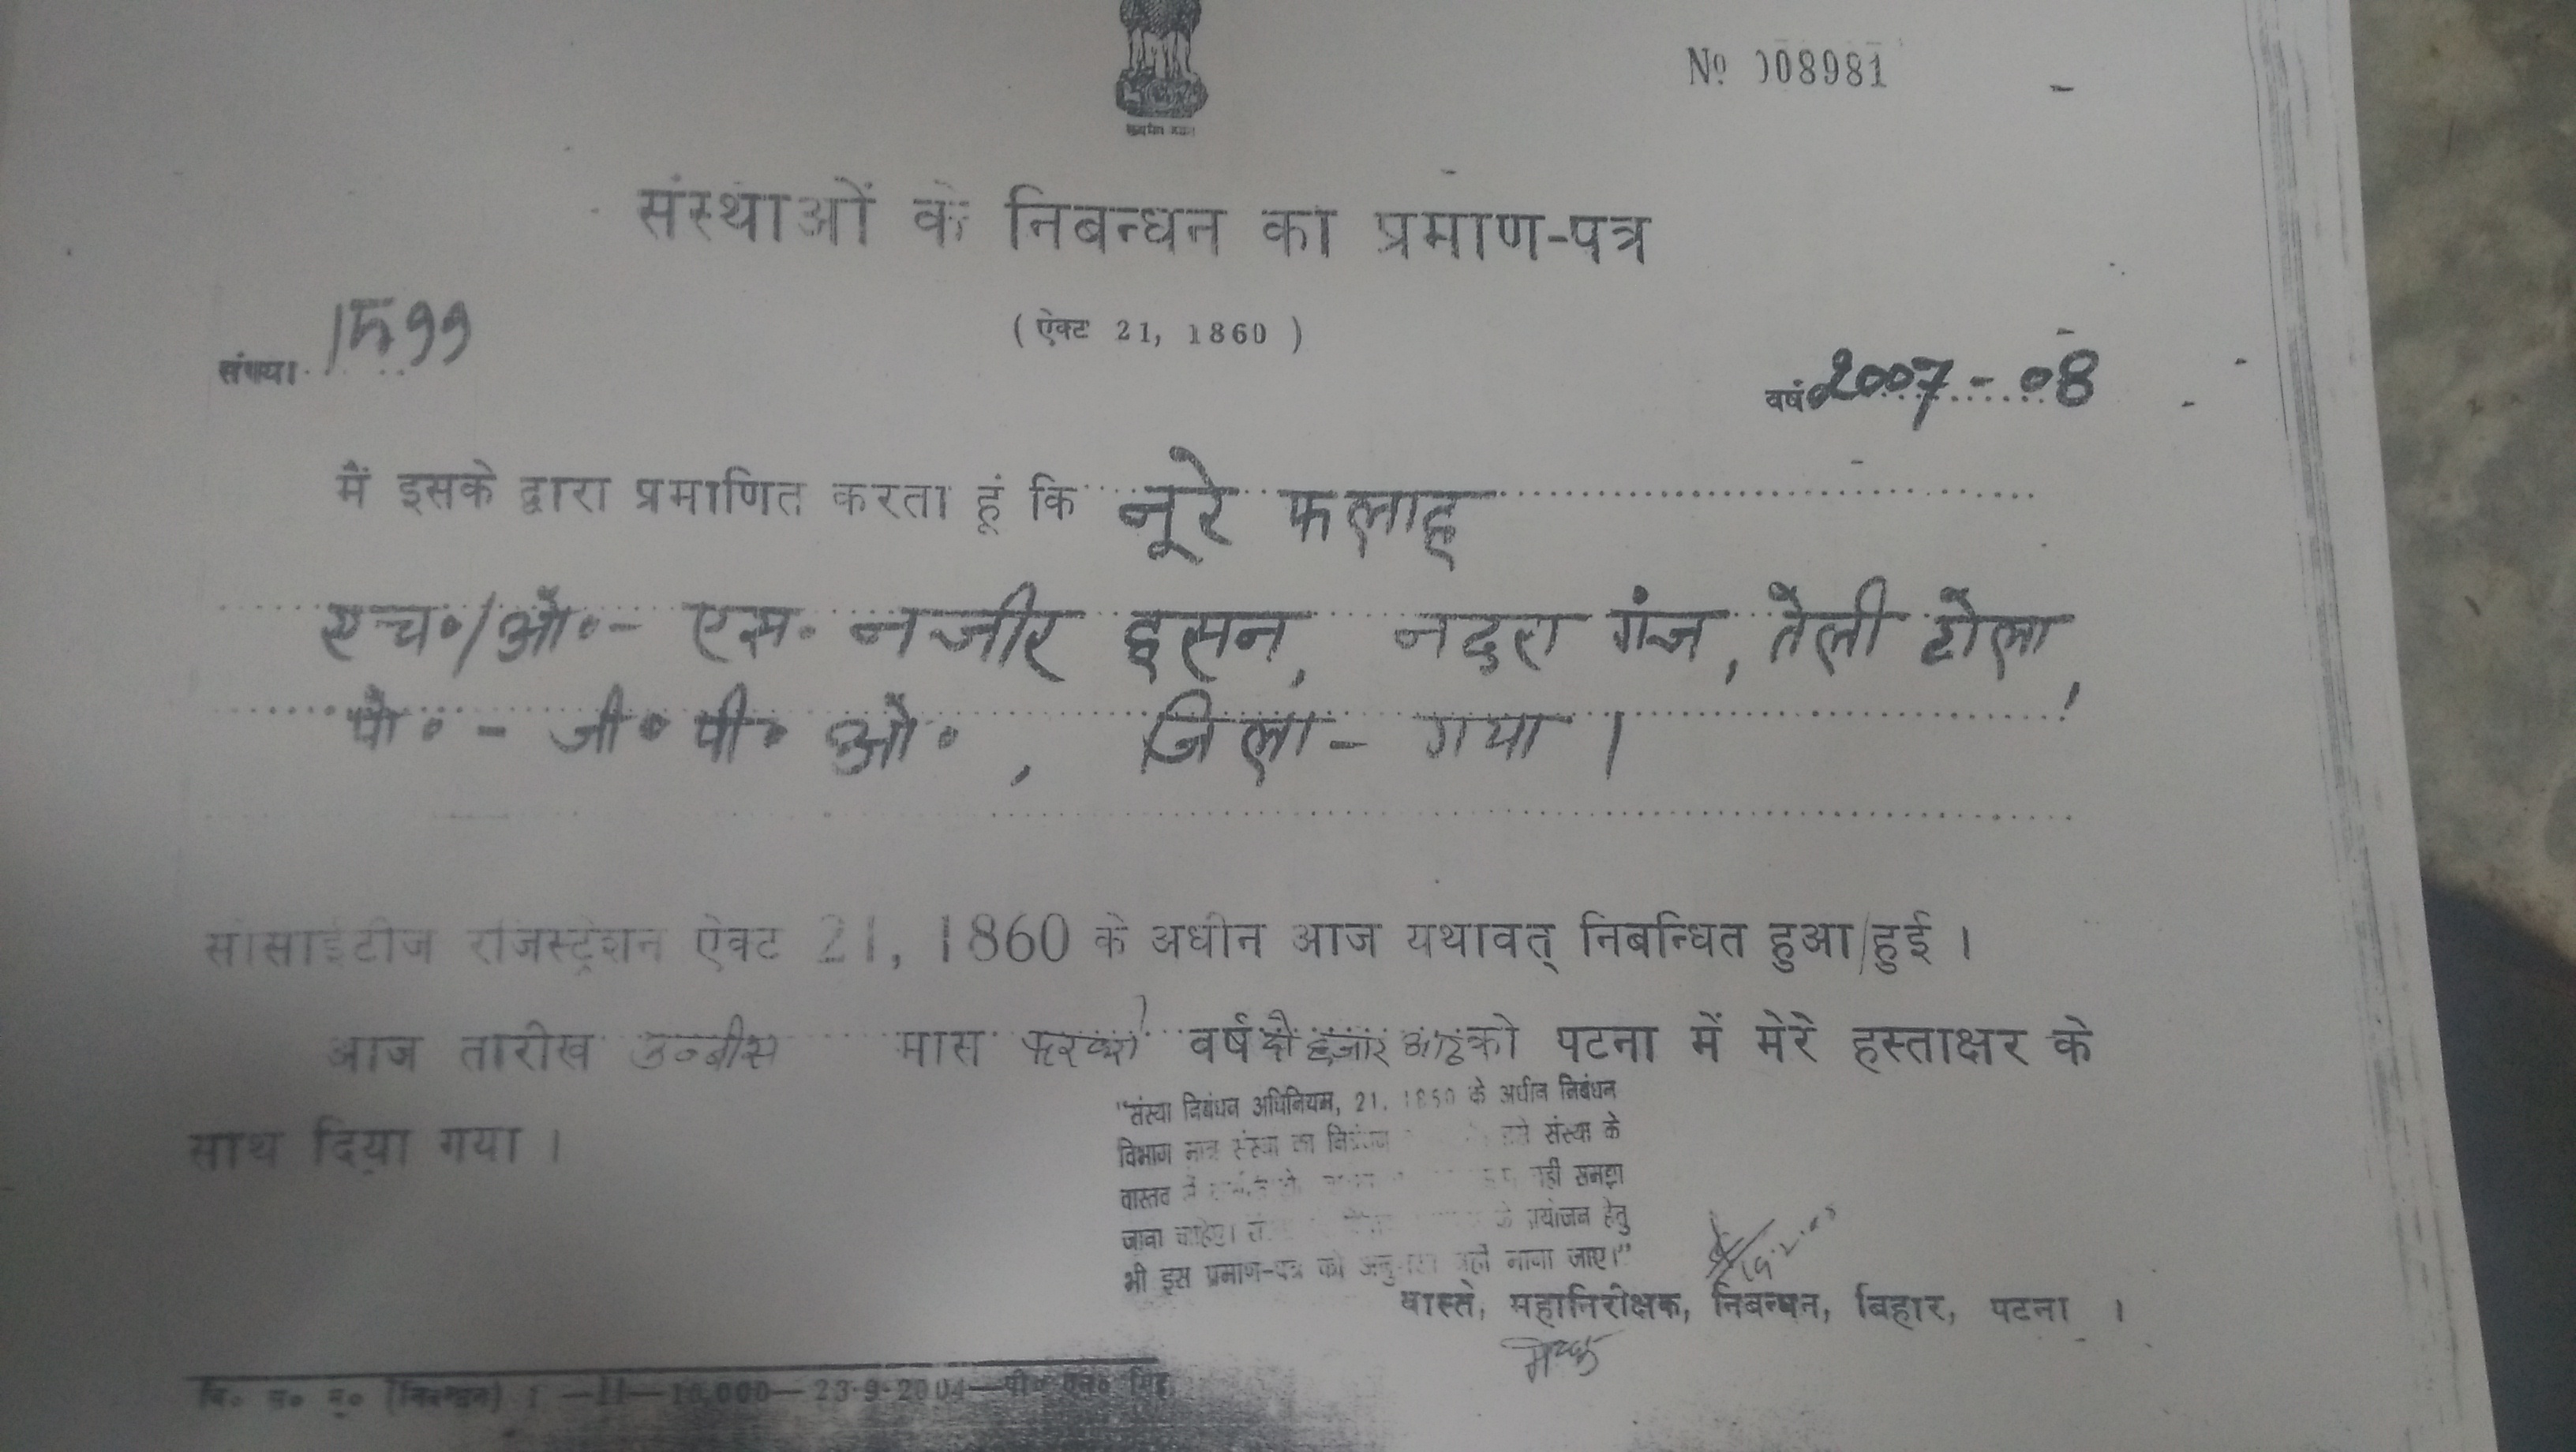 No 008981
संस्थाओं के निबन्धन का प्रमाण-पत्र
( ऐक्ट 21, 1860 )
संख्या 1599
वर्ष 2007 - 08
मैं इसके द्वारा प्रमाणित करता हूं कि नूरे फलाह
एच०/ओ०- एस. नजीर हसन, नदुरा गंज, तेली टोला,
पो० - जी० पी० ओ०, जिला - गया ।
सोसाईटीज रजिस्ट्रेशन ऐक्ट 21, 1860 के अधीन आज यथावत् निबन्धित हुआ/हुई ।
आज तारीख उन्नीस मास फरवरी वर्ष दो हजार आठ को पटना में मेरे हस्ताक्षर के
साथ दिया गया ।
"संस्था निबंधन अधिनियम, 21, 1860 के अधीन निबंधन
विभाग मात्र संस्था का निबंधन संस्था के
वास्तव में नहीं समझा
जाना चाहिए। के प्रयोजन हेतु
भी इस प्रमाण-पत्र को नहीं माना जाए।"
वास्ते, महानिरीक्षक, निबन्धन, बिहार, पटना ।
बि० स० मु० (निबन्धन) 1 —11—10,000—23-9-2004—पी० एन० सिंह